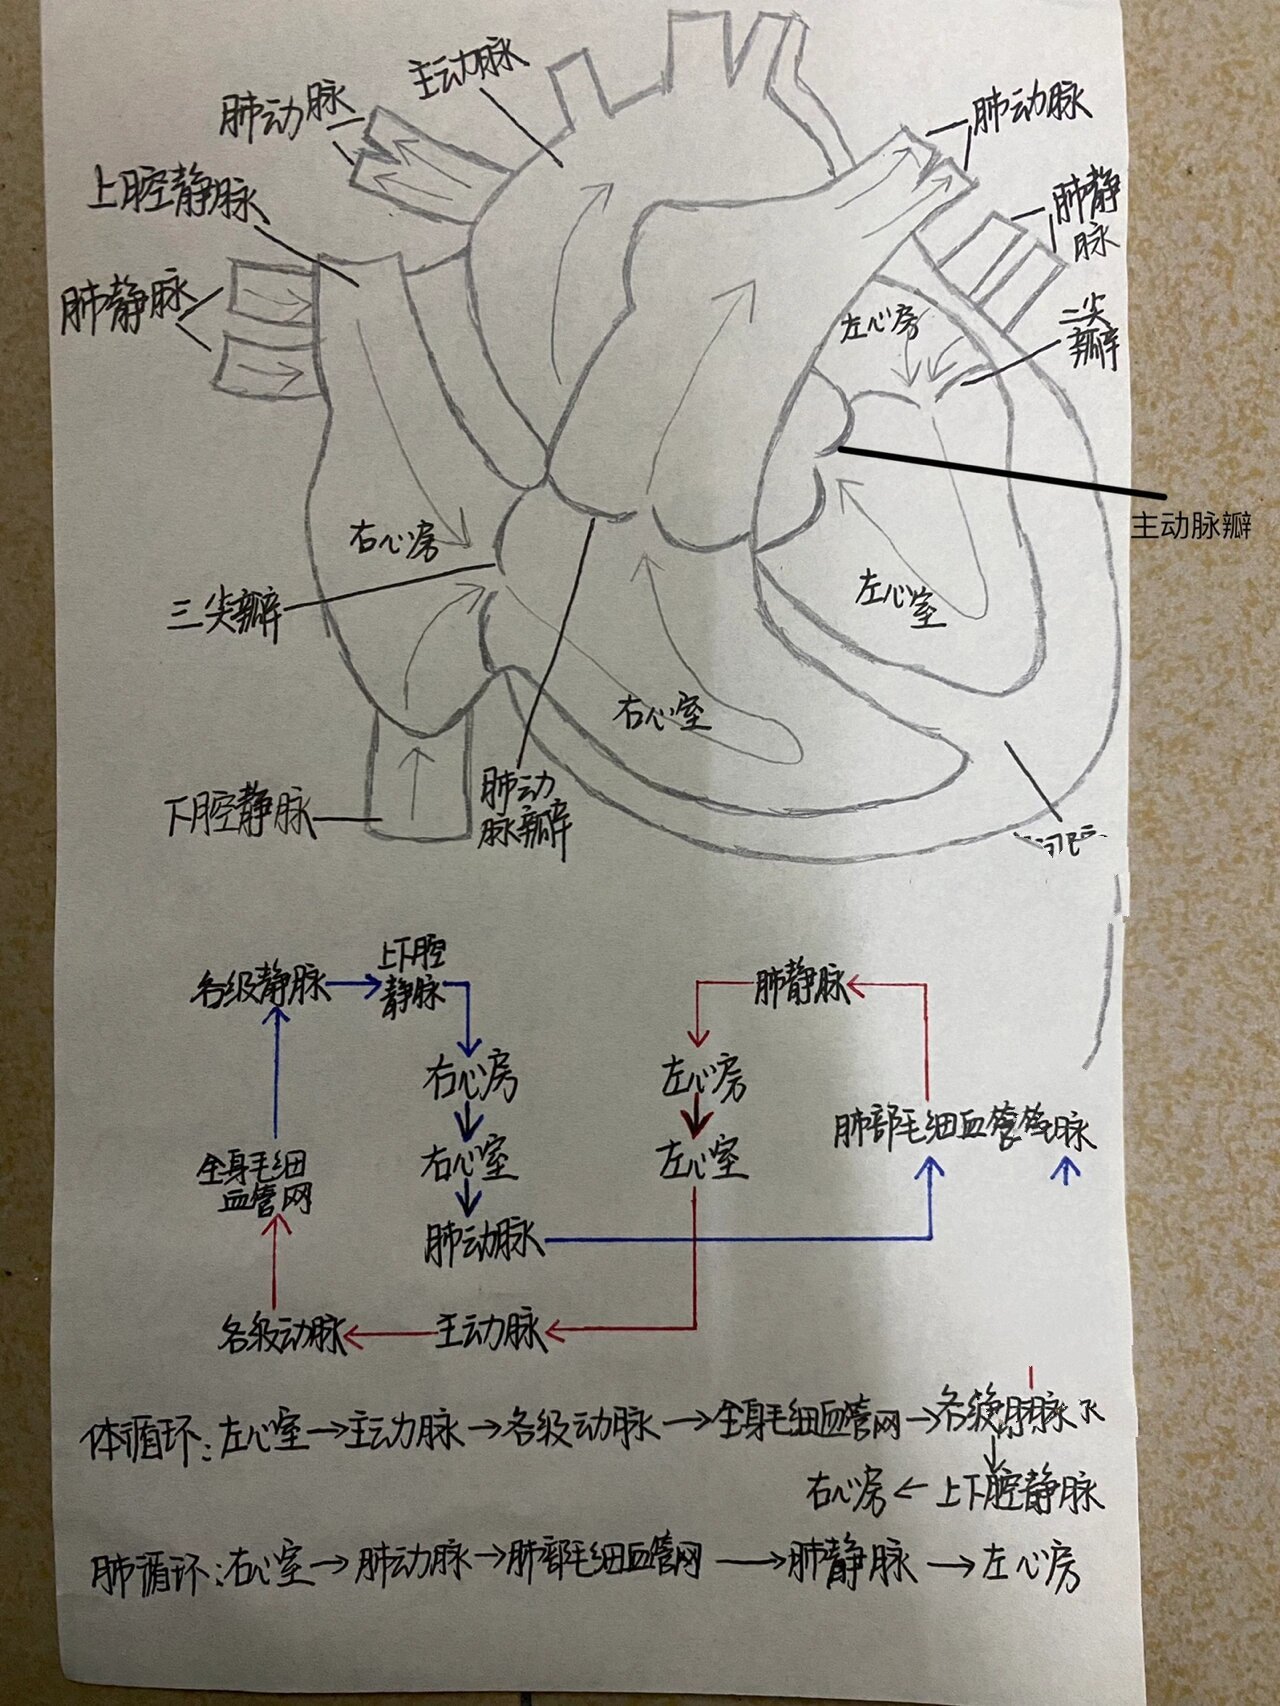 主动脉
肺动脉
肺动脉
上腔静脉
肺静脉
肺静
脉
左心房
二尖
瓣
主动脉瓣
右心房
左心室
三尖瓣
右心室
下腔静脉
肺动
脉瓣
各级静脉
上下腔
静脉
肺静脉
右心房
左心房
肺部毛细血管
脉
全身毛细
血管网
右心室
左心室
肺动脉
各级动脉
主动脉
体循环:左心室→主动脉→各级动脉→全身毛细血管网→各级
右心房←上下腔静脉
肺循环:右心室→肺动脉→肺部毛细血管网→肺静脉→左心房